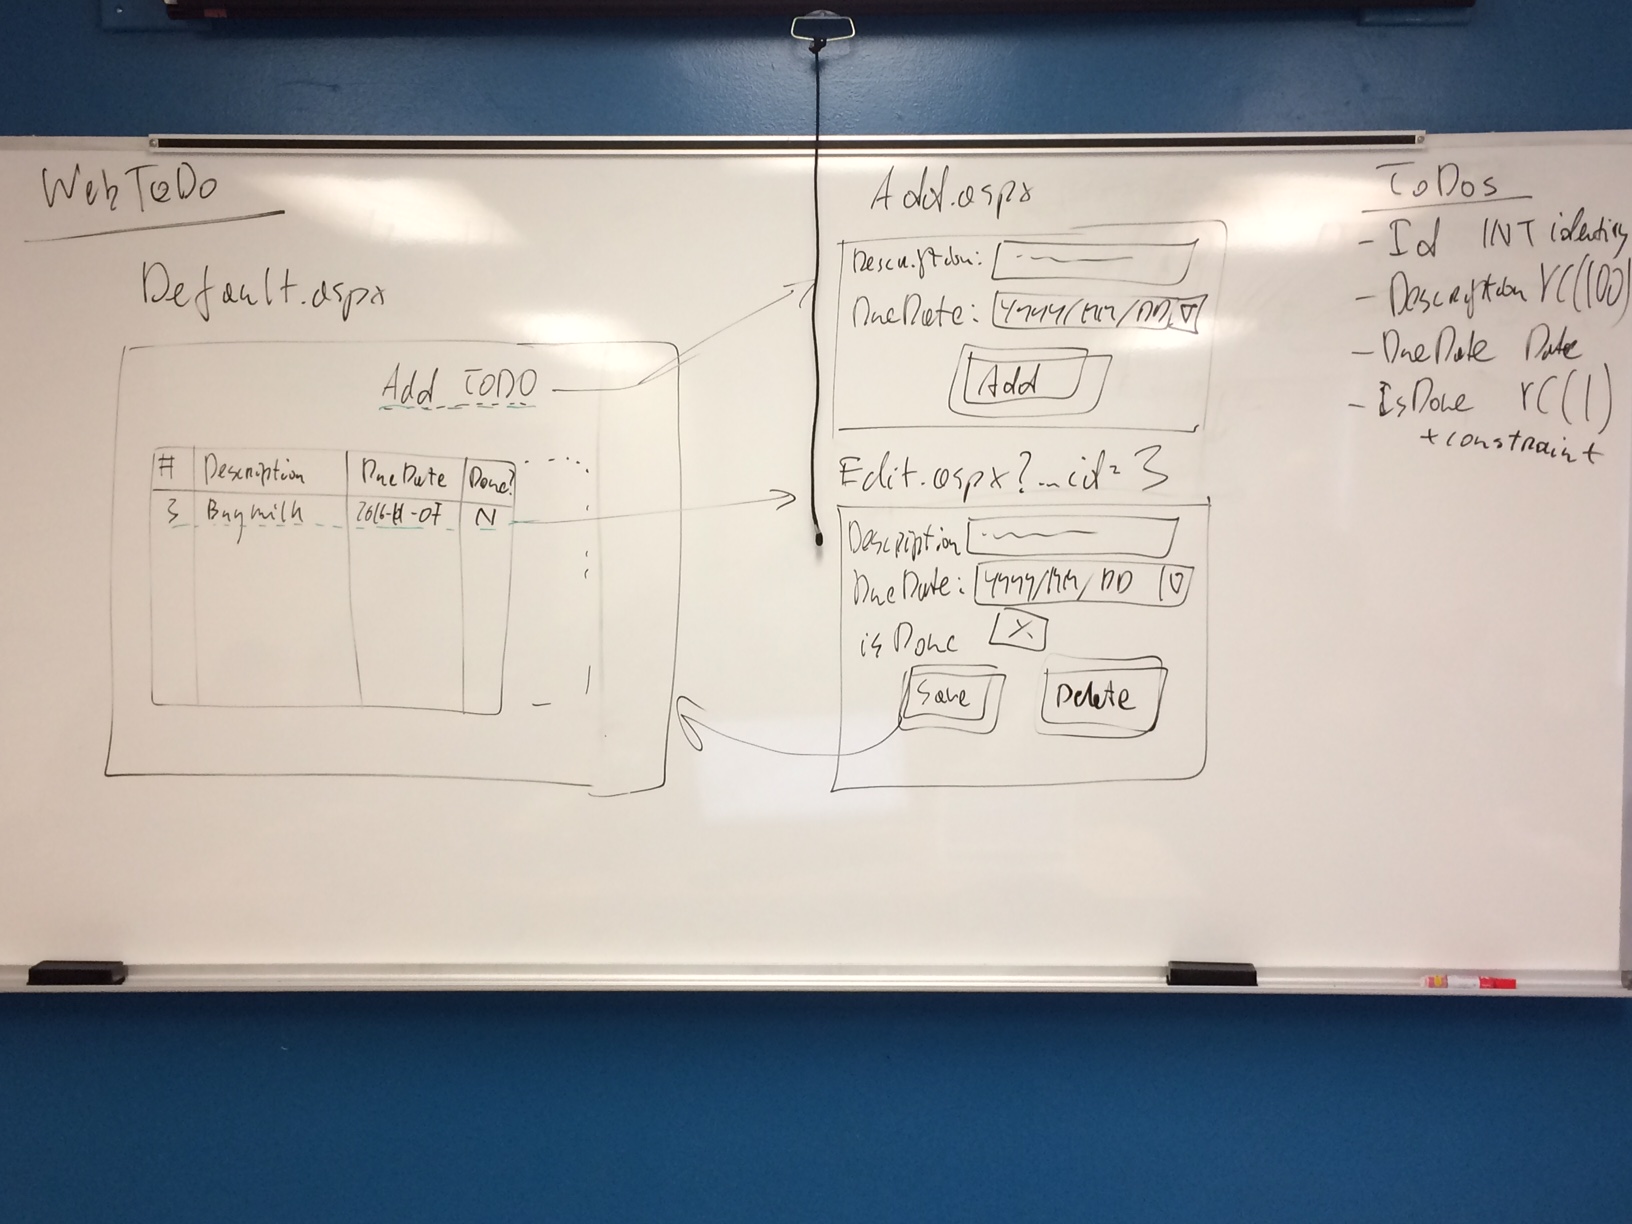 WebToDo
Default.aspx
Add TODO
# Description DueDate Done?
3 Buy milk N
Add.aspx
Description:
DueDate: YYYY/MM/DD
Add
Edit.aspx?...id=3
Description
DueDate: YYYY/MM/DD
isDone X
Save Delete
ToDos
- Id INT identity
- Description VC(100)
- DueDate Date
- IsDone VC(1)
+ constraint